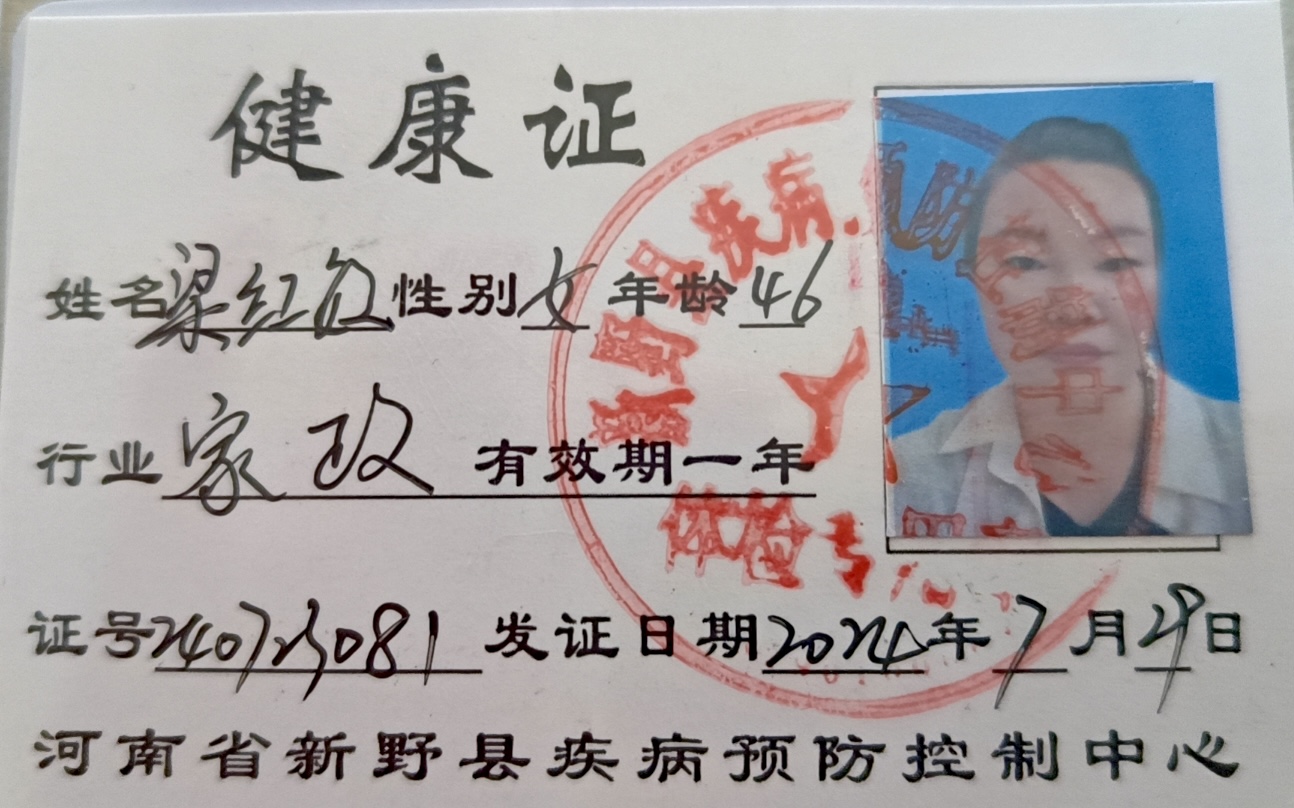 健康证
姓名梁红 性别女 年龄46
行业家政 有效期一年
证号240723081 发证日期2024年7月29日
河南省新野县疾病预防控制中心
体检专